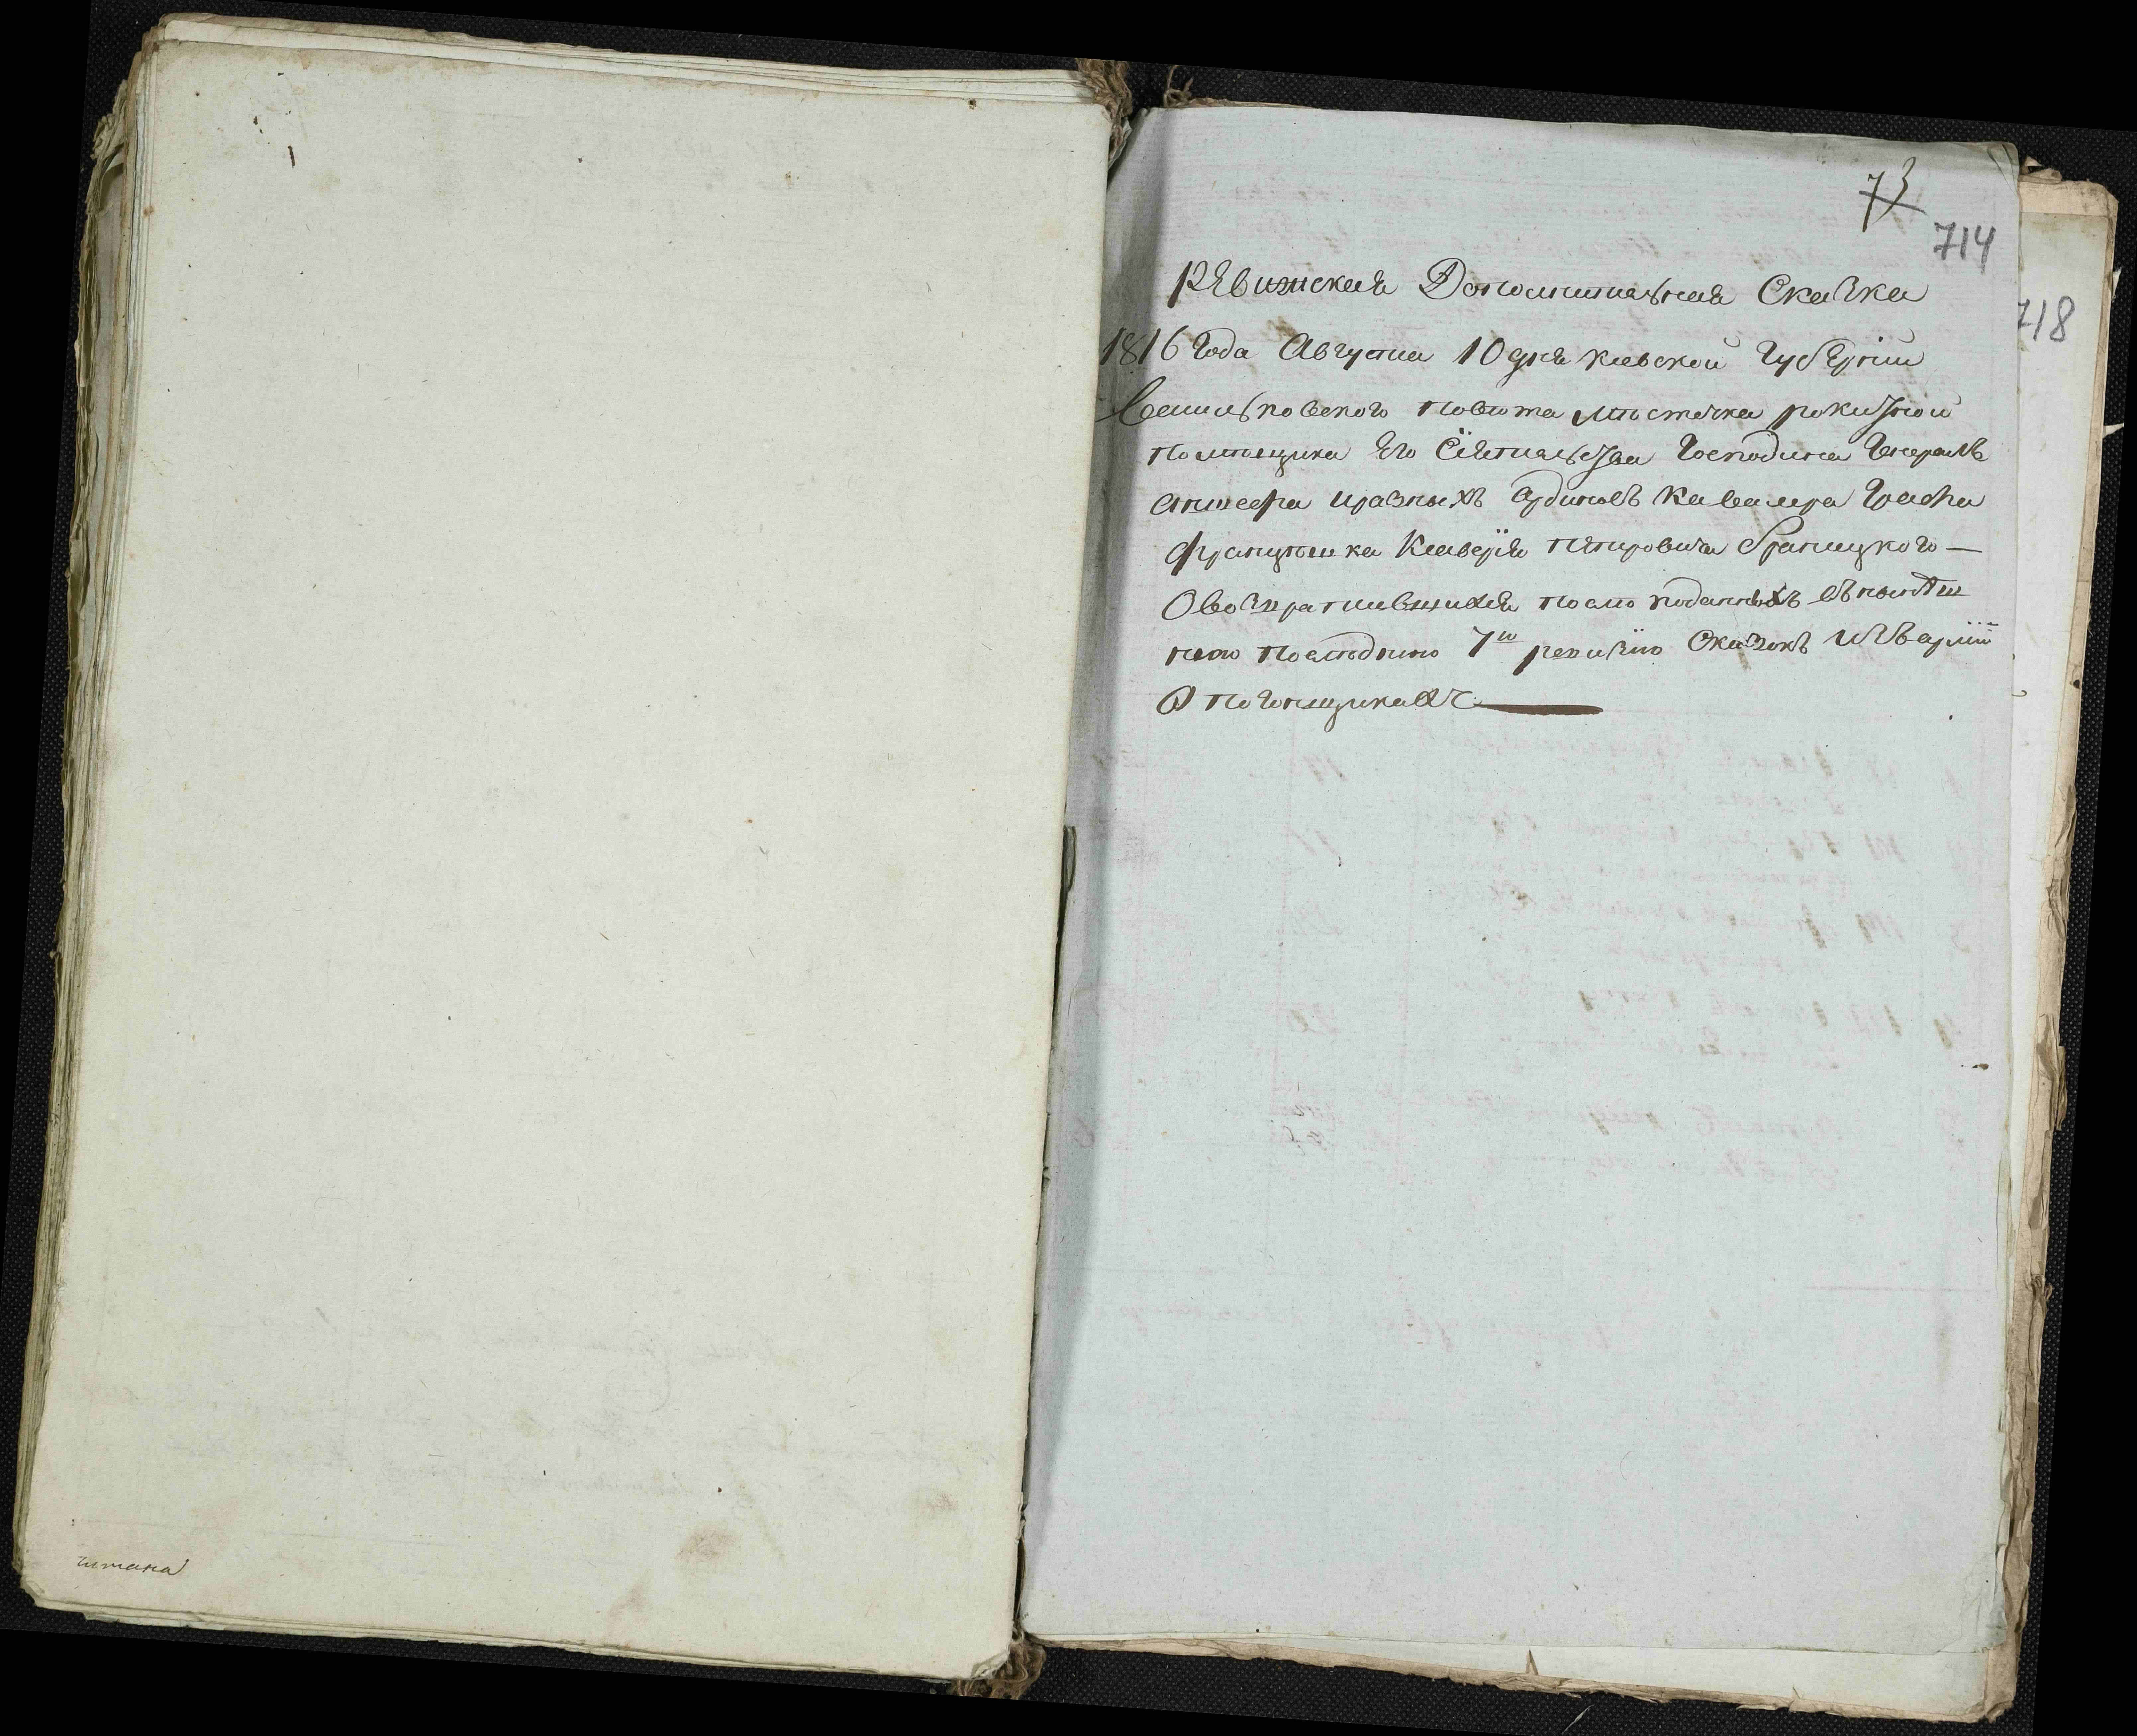 73
714
718
Ревижская Дополнительная Сказка
1816 Года Августа 10 дня киевской Губерніи
Васильковского повета местечка рокитной
помещика Его Сіятельства Господина Генералъ
аншефа иразныхъ Ординовъ Кавалера Графа
францишка Ксаверія петровича браницкого —
Овозвратившихся посло поданныхъ
нею последнюю 7ю ревизію Сказокъ
О погонщикахъ
читана